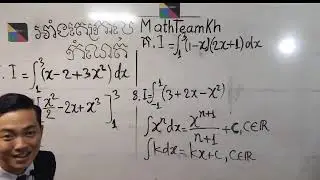 អាំងតេក្រាល
កំណត់
MathTeamKh
ក. I = ∫₁³ (x - 2 + 3x²) dx
[x²/2 - 2x + x³]₁³
គ. I = ∫₁³ (1-x)(2x+1) dx
8. I = ∫₋₁¹ (3 + 2x - x²)
∫xⁿdx = xⁿ⁺¹/n+1 + C, C∈ℝ
∫kdx = kx + C, C∈ℝ